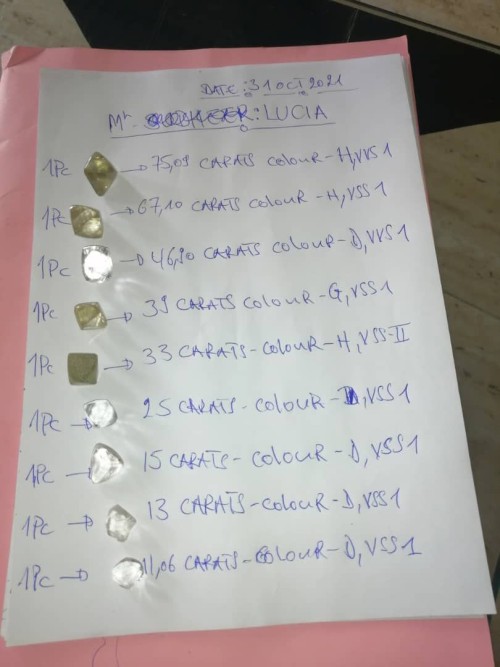 DATE: 31 OCT 2021
Mr. : LUCIA
1Pc → 75,09 CARATS COLOUR-H, VVS1
1Pc → 67,10 CARATS COLOUR-H, VSS1
1Pc → 46,90 CARATS COLOUR-D, VVS1
1Pc → 39 CARATS COLOUR-G, VSS1
1Pc → 33 CARATS-COLOUR-H, VSS-II
1Pc → 25 CARATS-COLOUR-D, VSS1
1Pc → 15 CARATS-COLOUR-D, VSS1
1Pc → 13 CARATS-COLOUR-D, VSS1
1Pc → 11,06 CARATS-COLOUR-D, VSS1